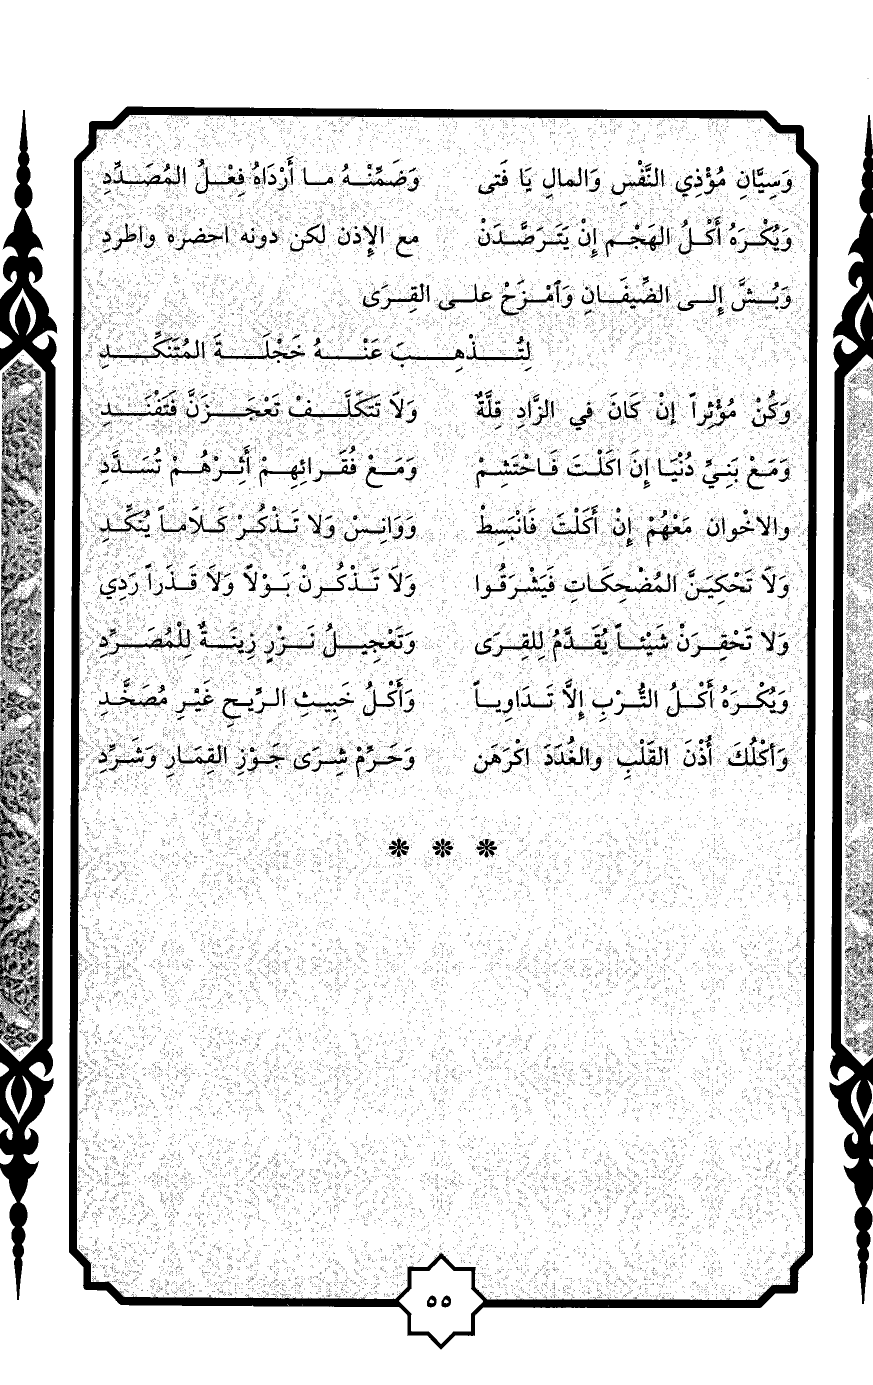 وَسِيَّانِ مُؤْذِي النَّفْسِ وَالمالِ يَا فَتى وَضَمِّنْهُ ما أَرْدَاهُ فِعْلُ المُصَدِّدِ
وَيُكْرَهُ أَكْلُ الهَجْمِ إِنْ يَتَرَصَّدَنْ مع الإِذن لكن دونه احضره واطردِ
وَبُشَّ إِلى الضِّيفَانِ وَآمْزَحْ على القِرَى
لِتُذْهِبَ عَنْهُ خَجْلَةَ المُتَنَكِّدِ
وَكُنْ مُؤْثِراً إنْ كَانَ في الزَّادِ قِلَّةٌ وَلاَ تَتَكَلَّفْ تَعْجَزَنَّ فَتَفْنَدِ
وَمَعْ بَنِيِّ دُنْيَا إِنَ اكَلْتَ فَاحْتَشِمْ وَمَعْ فُقَرائِهِمْ أَثِرْهُمْ تُسَدَّدِ
والاخْوان مَعْهُمْ إِنْ أَكَلْتَ فَانْبَسِطْ وَوَانِسْ وَلا تَذْكُرْ كَلاَماً يُنَكِّدِ
وَلاَ تَحْكِيَنَّ المُضْحِكَاتِ فَيَشْرَقُوا وَلاَ تَذْكُرنْ بَوْلاً وَلاَ قَذَراً رَدِي
وَلا تَحْقِرَنْ شَيْئاً يُقَدَّمُ لِلقِرَى وَتَعْجِيلُ نَزْرٍ زِينَةٌ لِلْمُصَرِّدِ
وَيُكْرَهُ أَكْلُ التُّرْبِ إِلاَّ تَدَاوِياً وَأَكْلُ خَبِيثِ الرِّيحِ غَيْرِ مُصَخَّدِ
وَأَكْلُكَ أُذْنَ القَلْبِ والغُدَدَ اكْرَهَن وَحَرِّمْ شِرَى جَوْزِ القِمَارِ وَشَرِّدِ
٥٥